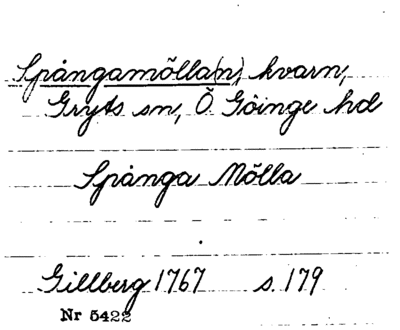 Spångamölla(n), kvarn,
Gryts sn, Ö. Göinge hd
Spånga Mölla
Gillberg 1767 s. 179
Nr 5422